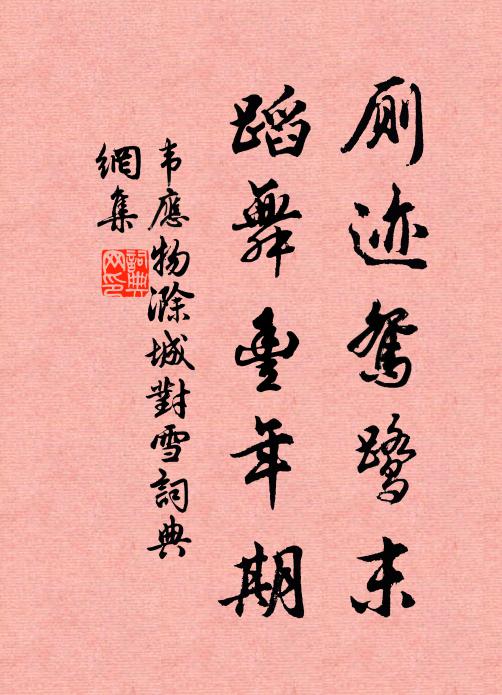 厕迹鸳鹭末
蹈舞豊年期
韦應物滁城對雪詞典
網集
詞典
网印